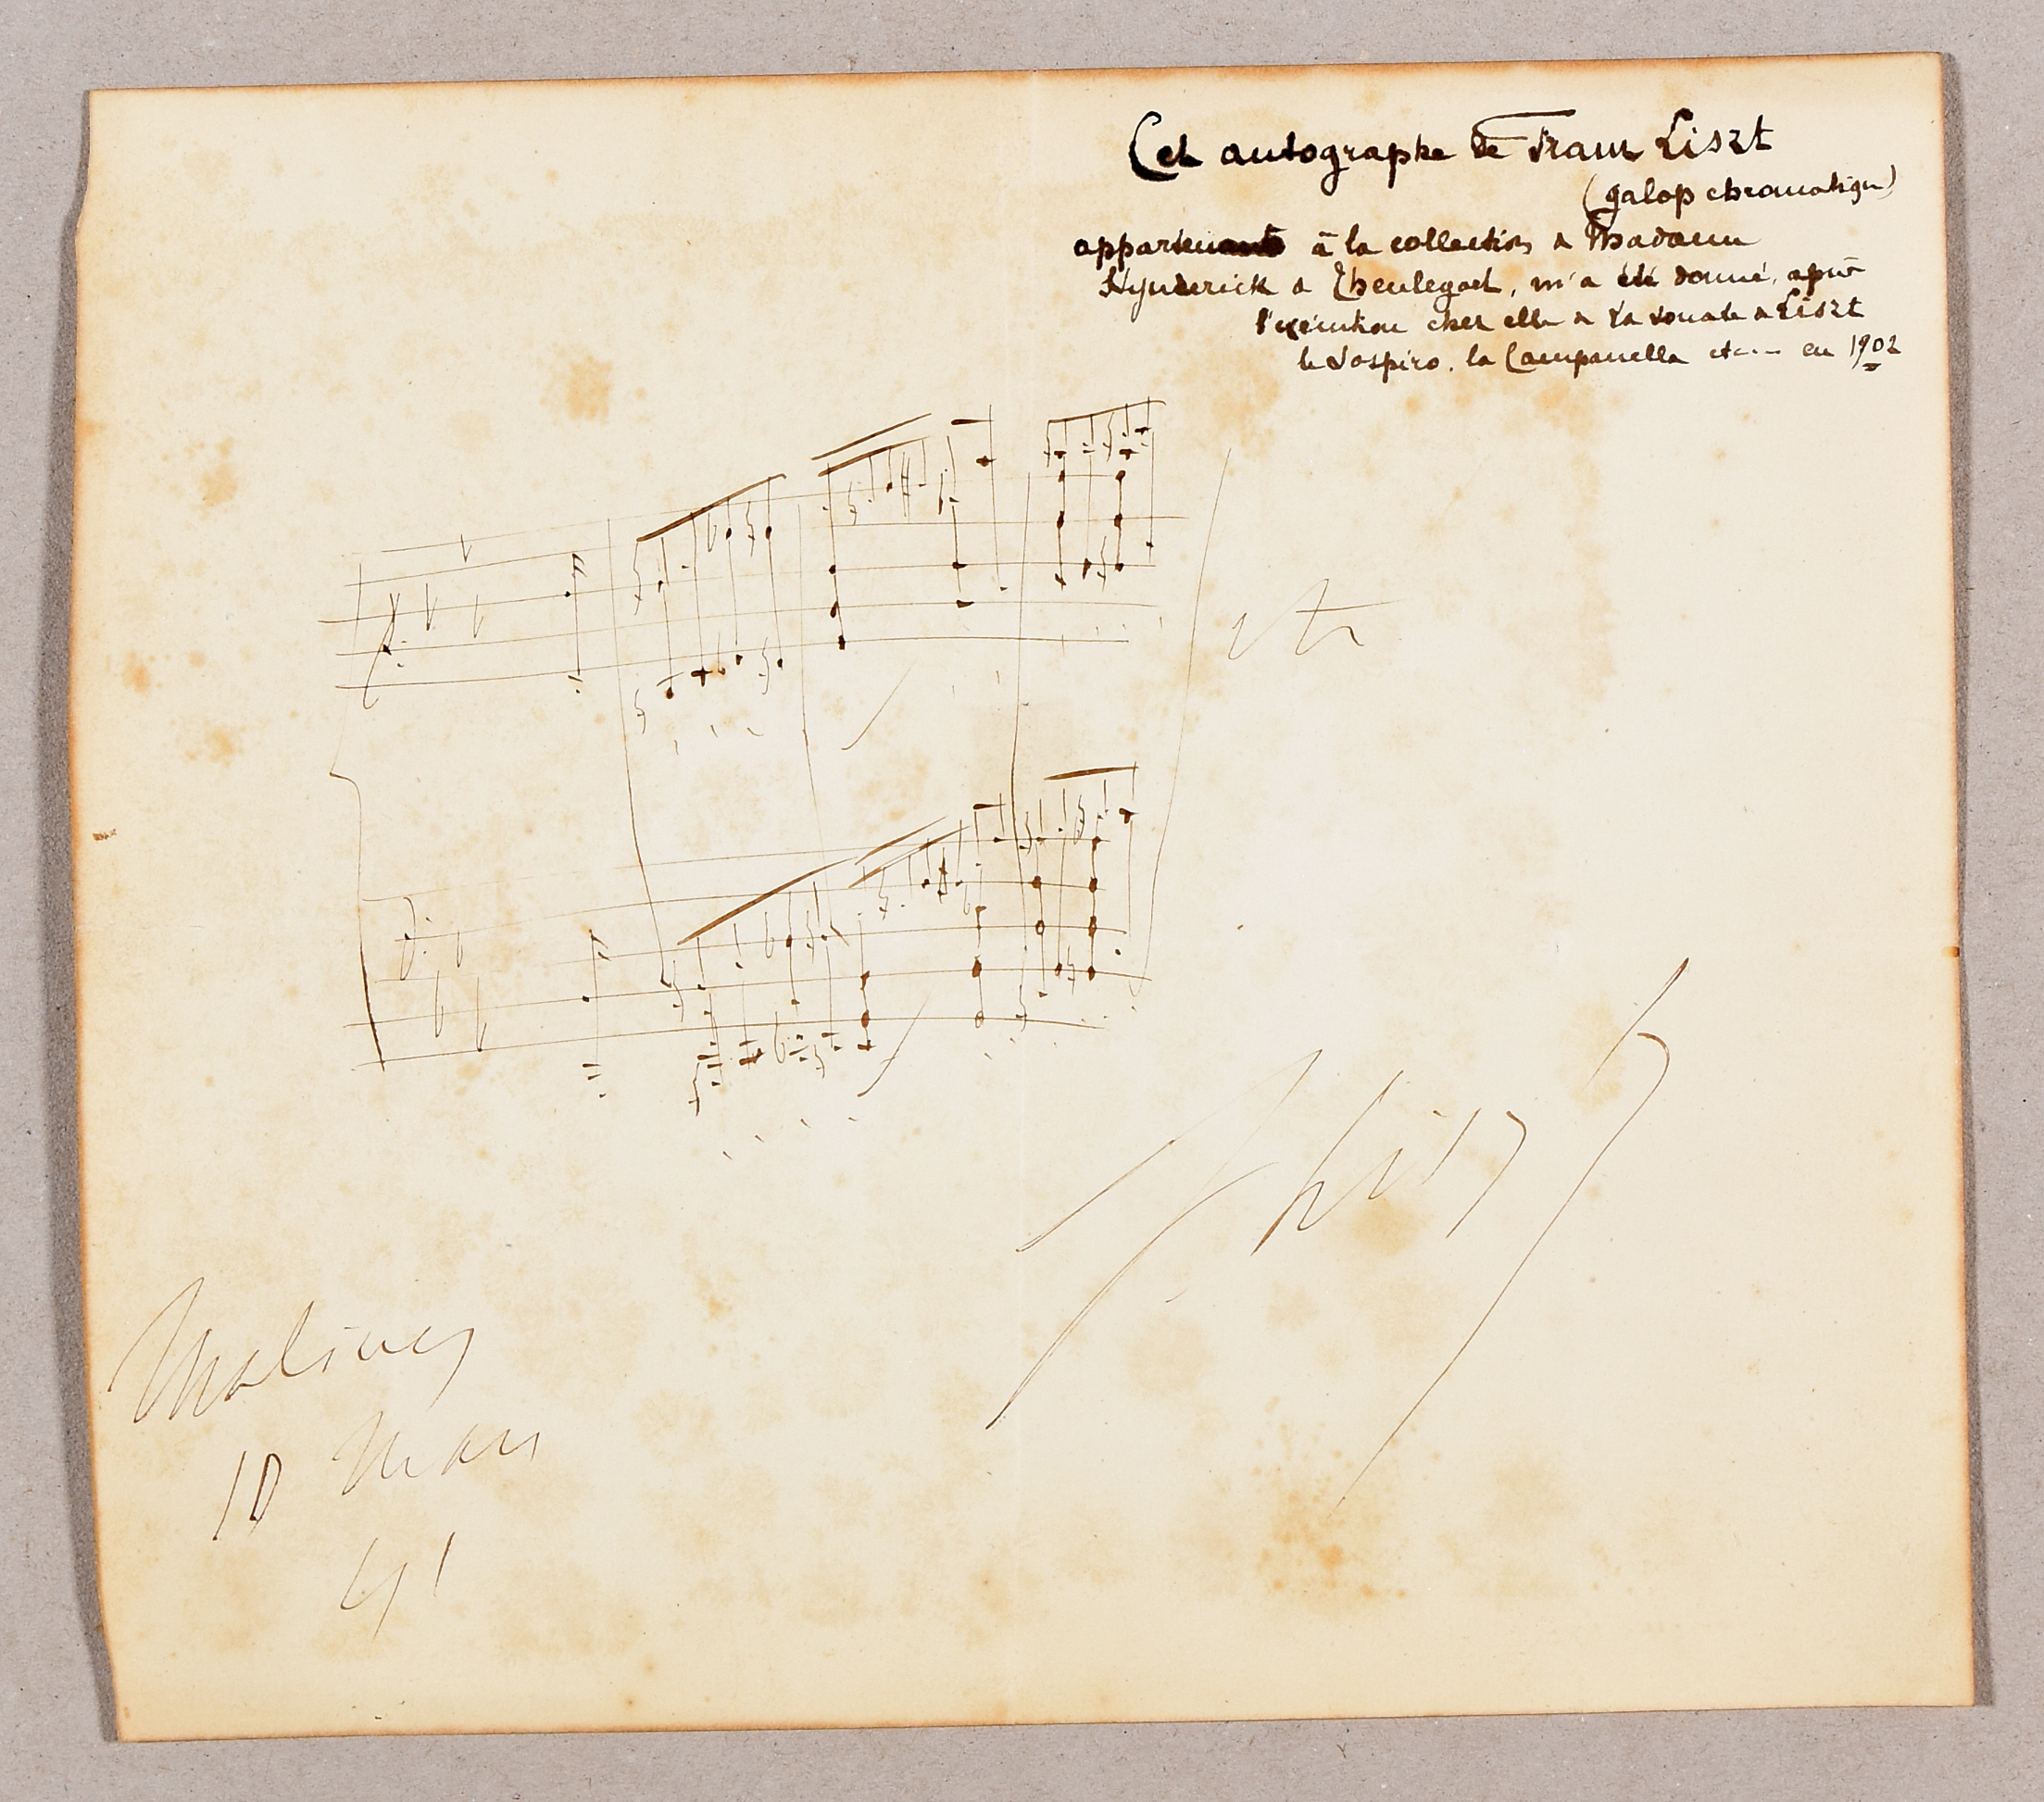 Cet autographe de Franz Liszt
(galop chromatique)
appartenant à la collection de Madame
Hynderick de Theulegoet, m'a été donné, après
l'exécution chez elle de la Sonate de Liszt
le Sospiro, la Campanella etc... en 1902
etc
F Liszt
Malines
10 Mars
41